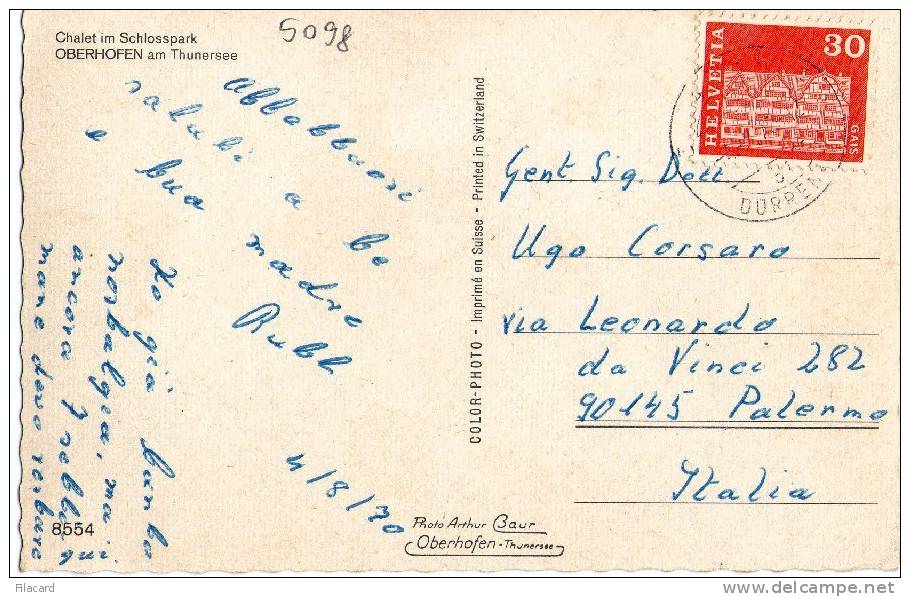 5098
Chalet im Schlosspark
OBERHOFEN am Thunersee
HELVETIA
30
GAIS
DÜRREN
Abbattuori
saluti a te
e tua madre
Rubb
4/8/70
Ho già tanta
nostalgia, ma
ancora 7 setti
mane devo restare
qui
Gent. Sig. Dott
Ugo Corsaro
via Leonardo
da Vinci 282
90145 Palermo
Italia
COLOR-PHOTO - Imprimé en Suisse - Printed in Switzerland
8554
Photo Arthur Baur
Oberhofen - Thunersee
filacard
www.delcampe.net